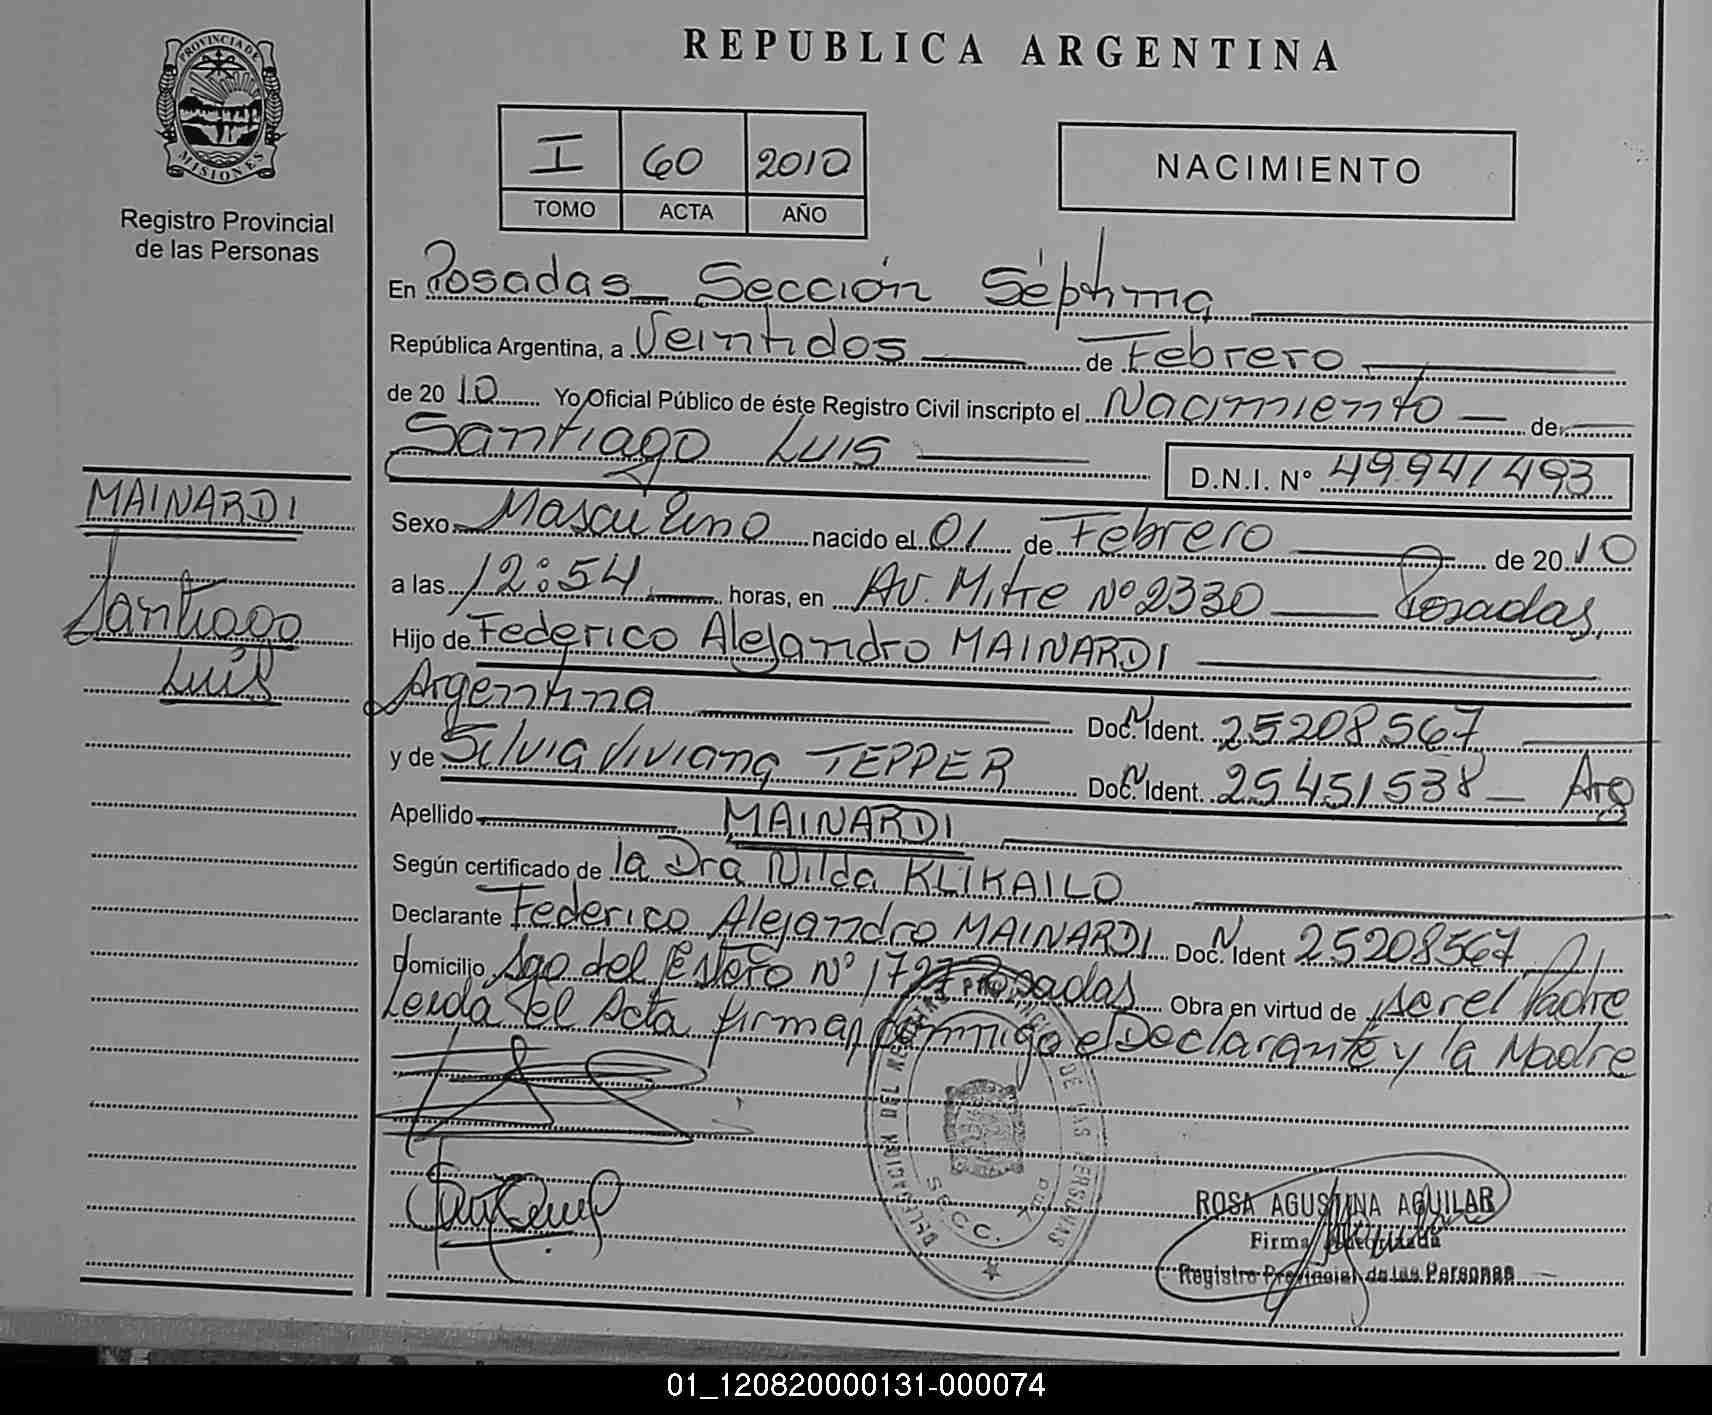 PROVINCIA DE
MISIONES
Registro Provincial
de las Personas
MAINARDI
Santiago
Luis
REPUBLICA ARGENTINA
I 60 2010
TOMO ACTA AÑO
NACIMIENTO
En Posadas Sección Séptima
República Argentina, a Veintidos de Febrero
de 20 10 Yo Oficial Público de éste Registro Civil inscripto el Nacimiento de
Santiago Luis D.N.I. Nº 49.941493
Sexo Masculino nacido el 01 de Febrero de 20 10
a las 12:54 horas, en Av. Mitre Nº 2330 Posadas,
Hijo de Federico Alejandro MAINARDI
Argentina Doc. N Ident. 25208567
y de Silvia Viviana TEPPER Doc. N Ident. 25451538 Arg
Apellido MAINARDI
Según certificado de la Dra Nilda KLIKAILO
Declarante Federico Alejandro MAINARDI Doc. N Ident 25208567
Domicilio Sgo del Estero Nº 1727 Posadas Obra en virtud de ser el Padre
Leida el Acta firman conmigo el Declarante y la Madre
DELEGACION DEL REGISTRO PROVINCIAL DE LAS PERSONAS
SECC. 7ma
ROSA AGUSTINA AGUILAR
Firma Autorizada
Registro Provincial de las Personas
01_120820000131-000074